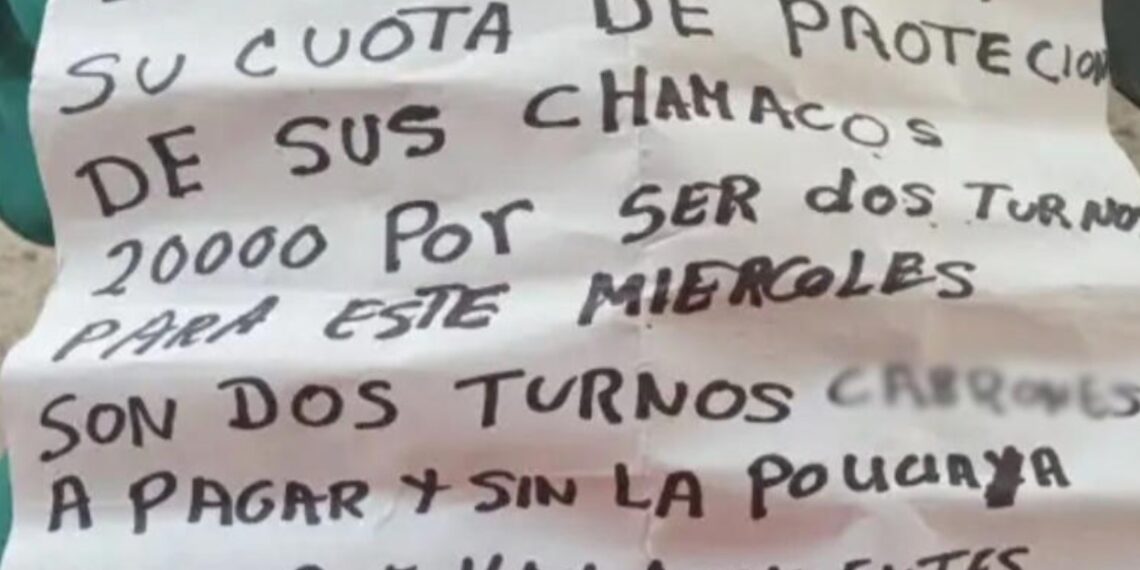 SU CUOTA DE PROTECION
DE SUS CHAMACOS
20000 POr SER doS TURNO
PARA ESTE MIERCOLES
SON DOS TURNOS CABRONES
A PAGAR Y SIN LA